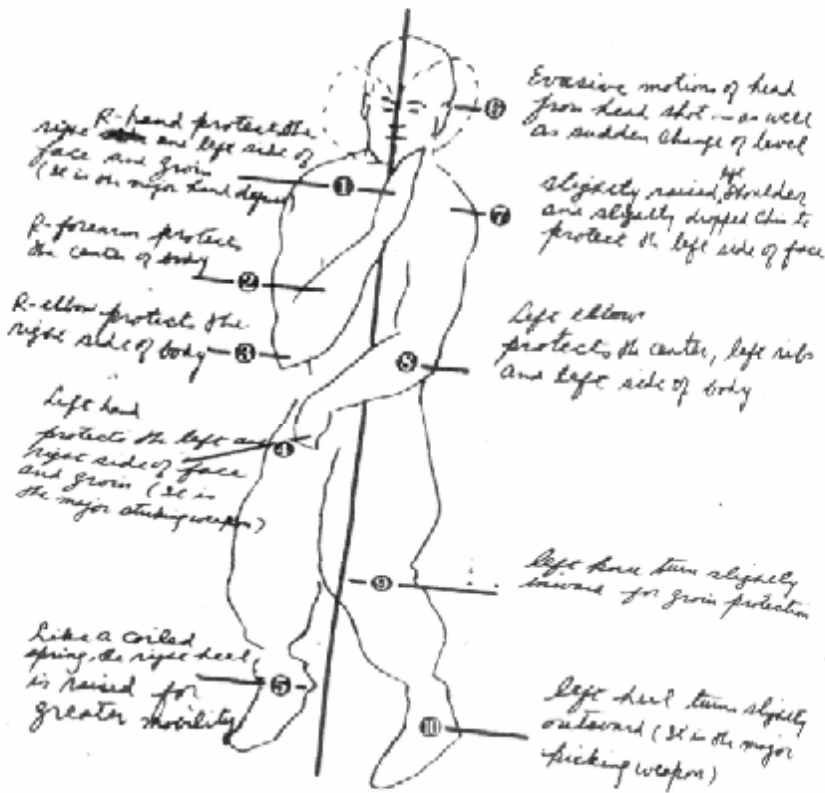 R-hand protect the
right and left side of
face and groin
(It is the major hand defense)
①
R-forearm protects
the center of body
②
R-elbow protects the
right side of body
③
Left hand
protects the left and
right side of face
and groin (It is
the major striking weapon)
④
Like a coiled
spring, the right heel
is raised for
greater mobility
⑤
Evasive motions of head
from head shot — as well
as sudden change of level
⑥
slightly raised left shoulder
and slightly dropped chin to
protect the left side of face
⑦
Left elbow
protects the center, left ribs
and left side of body
left knee turn slightly
inward for groin protection
⑨
left heel turn slightly
outward (It is the major
kicking weapon)